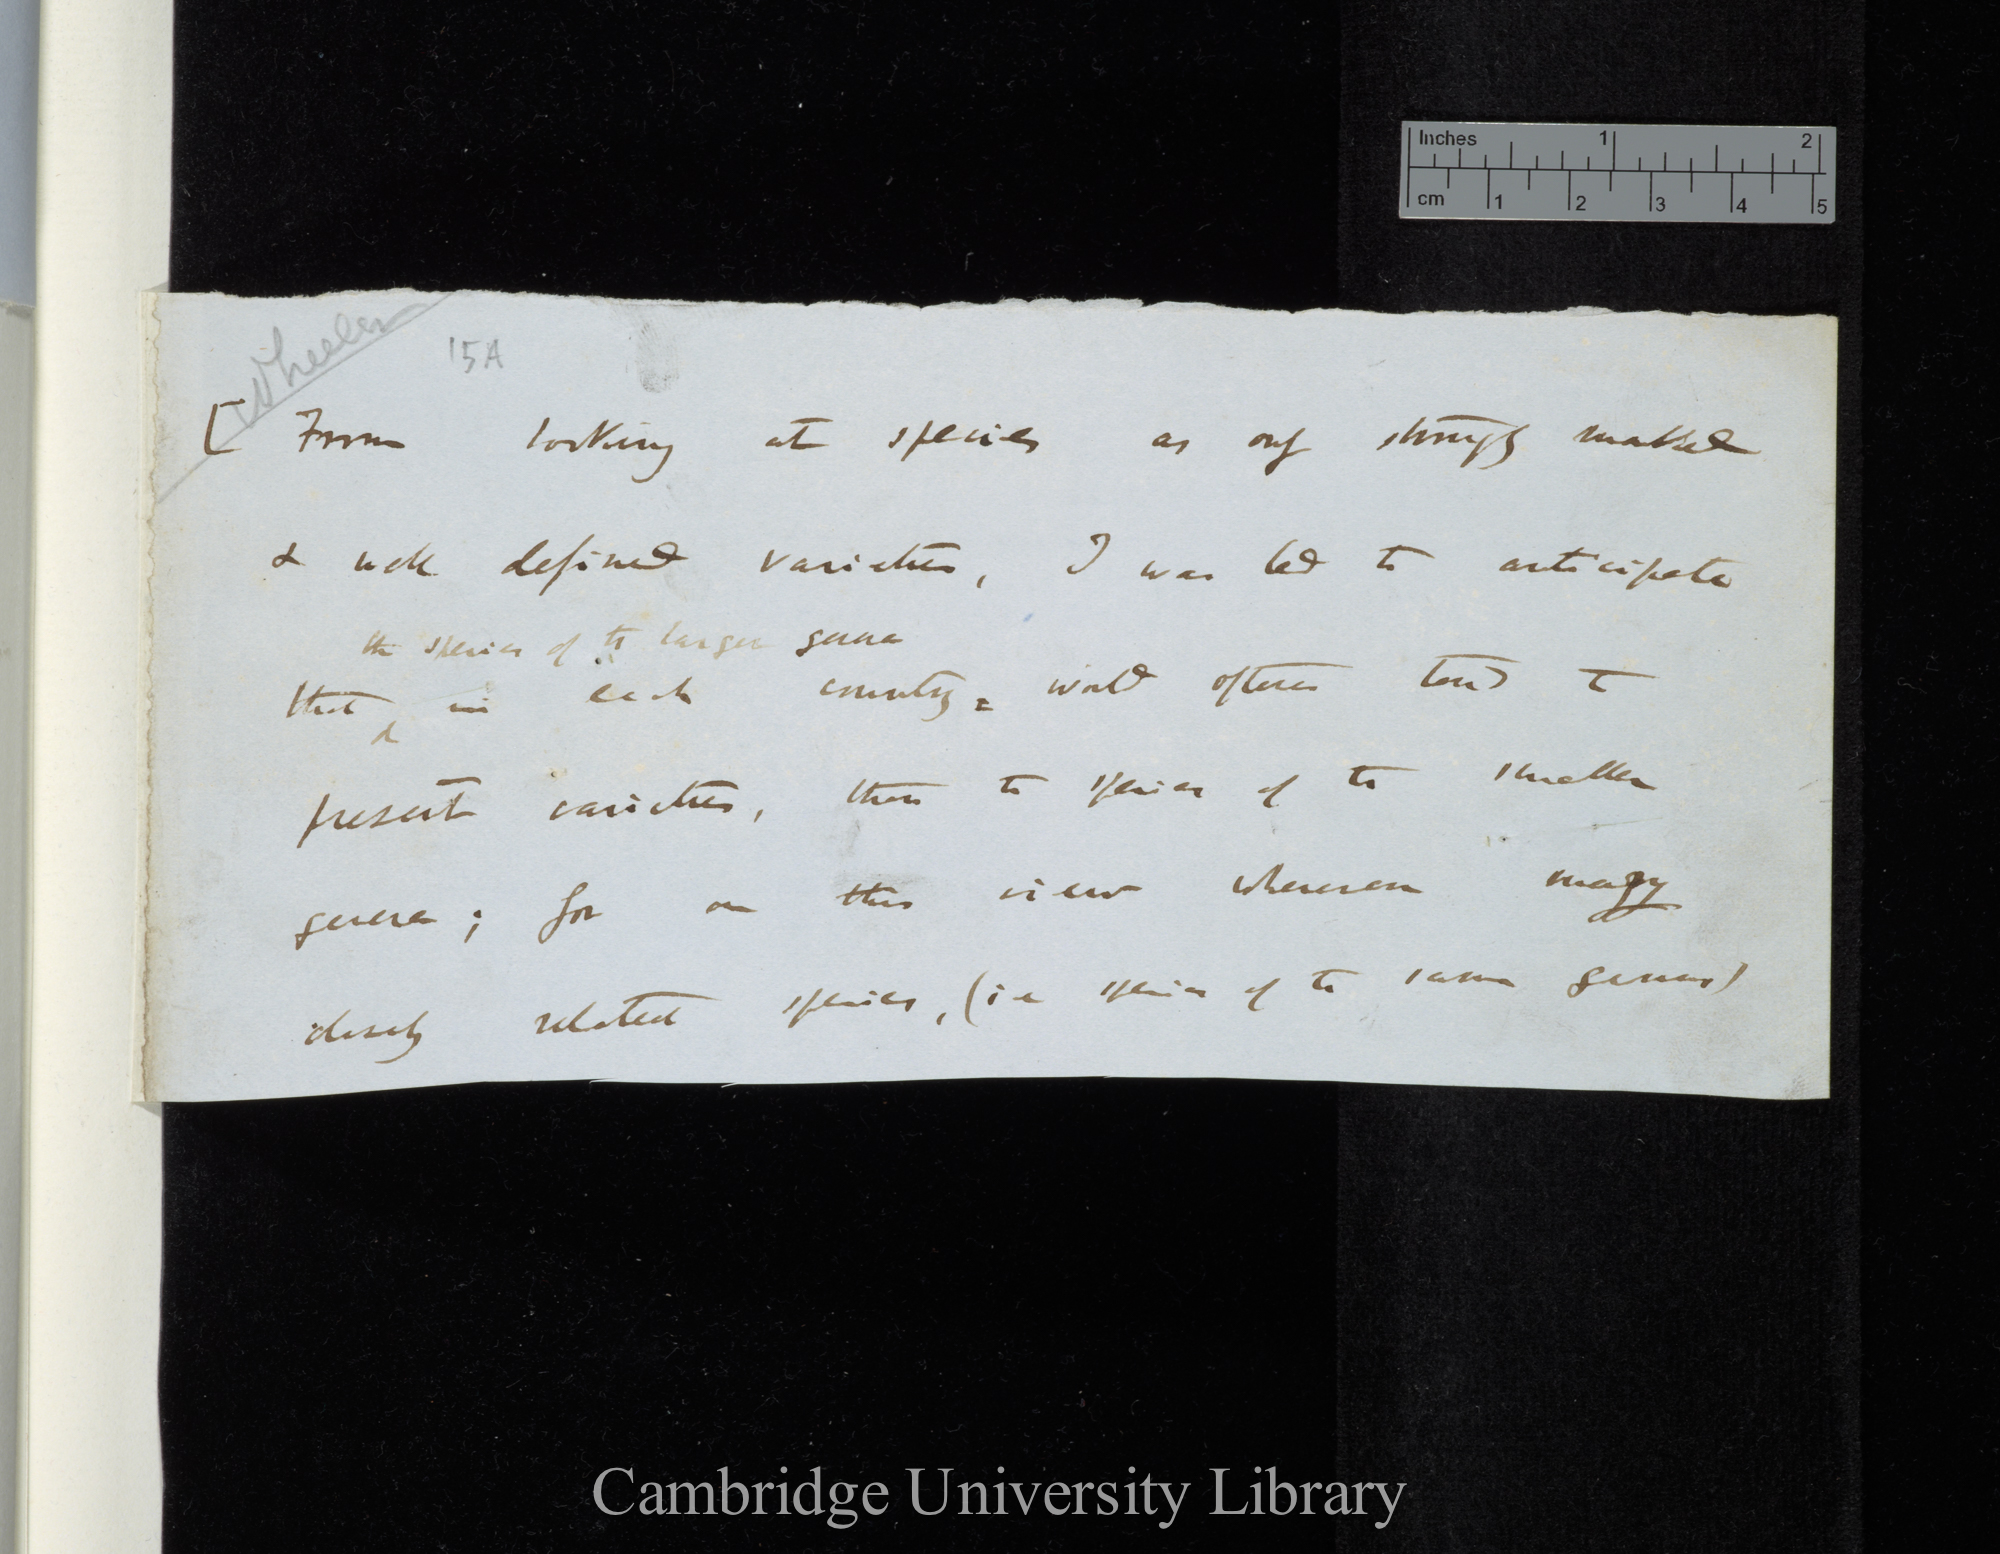 Inches 1 2
cm 1 2 3 4 5
Wheeler
15A
[ From looking at species as only strongly marked
& well defined varieties, I was led to anticipate
the species of the larger genera
that in each country, would oftener tend to
present varieties, than the species of the smaller
genera; for on this view wherever many
closely related species, (ie species of the same genus)
Cambridge University Library